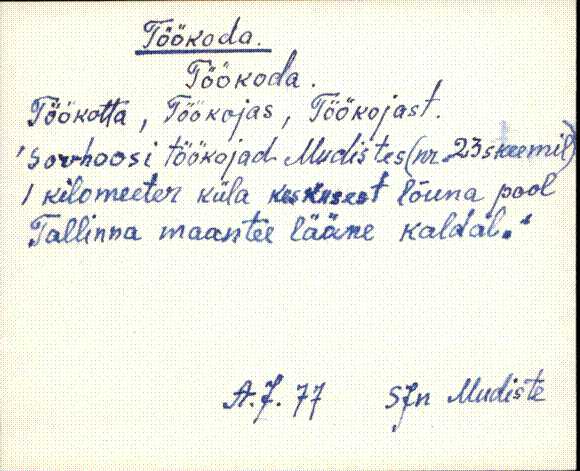 Töökoda.
Töökoda.
Töökotta, Töökojas, Töökojast.
"Sovhoosi töökojad Mudistes (nr. 23 skeemil)
1 kilomeeter küla keskusest lõuna pool
Tallinna maantee lääne kaldal."
A.J. 77 SJn Mudiste